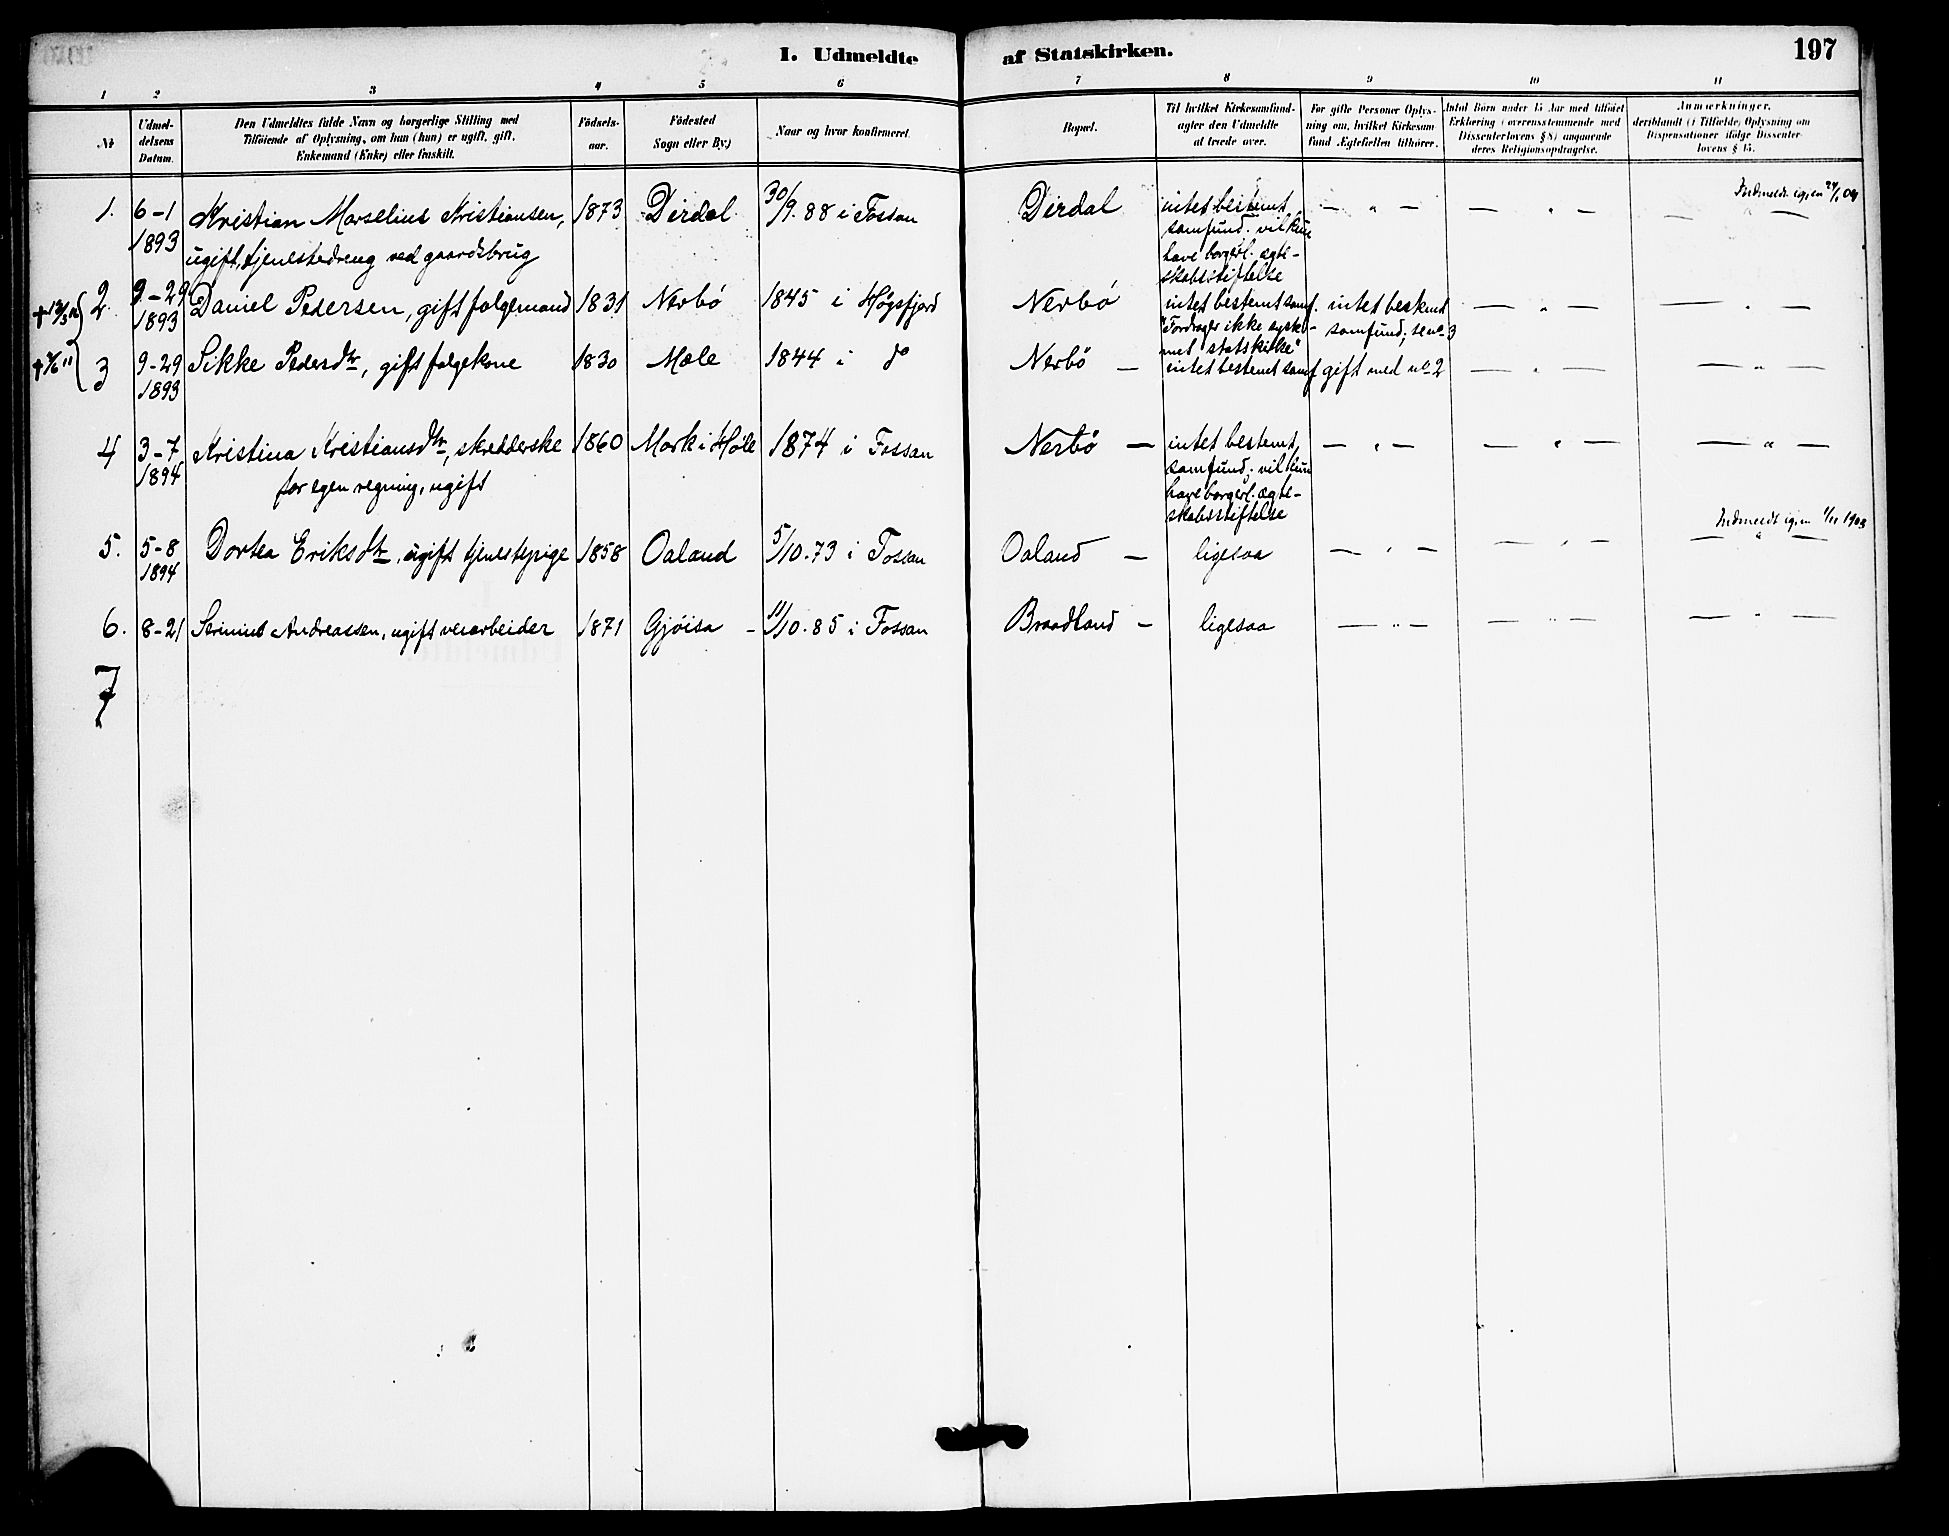 I. Udmeldte af Statskirken. 197
1 2 3 4 5 6 7 8 9 10 11
Nr
Udmel-
delsens
Datum.
Den Udmeldtes fulde Navn og borgerlige Stilling med
Tilföiende af Oplysning, om han (hun) er ugift, gift,
Enkemand (Enke) eller fraskilt.
Födsels-
aar.
Födested
Sogn eller By)
Naar og hvor konfirmeret.
Bopæl.
Til hvilket Kirkesamfund-
agter den Udmeldte
at træde over.
For gifte Personer Oplys-
ning om, hvilket Kirkesam
fund Ægtefællen tilhører.
Antal Börn under 15 Aar med tilföiet
Erklæring (overensstemmende med
Dissenterlovens § 8) angaaende
deres Religionsopdragelse.
Anmærkninger,
deriblandt (i Tilfælde) Oplysning om
Dispensationer ifölge Dissenter
lovens § 15.
Indmeldt igjen
1. 6-1 Kristian Marselius Kristiansen, 1873 Dirdal 30/9.88 i Fossan Dirdal intet bestemt — " — — " — — " —
1893 ugift, tjenestedreng ved gaardsbrug samfund. vil kun
have borgerl. ægte-
skabsstiftelse
2. 9-29 Daniel Pedersen, gift folgemand 1831 Nerbö 1845 i Högsfjord Nerbö intet bestemt samf. intet bestemt — " — — " —
1893 "Fordrager ikke samfund; se no 3
met statskirke"
3 9-29 Sikke Pedersdtr, gift folgekone 1830 Mæle 1844 i do Nerbö — intet bestemt samf gift med no 2 — " — — " —
1893
4 3-7 Kristina Kristiansdtr, skrædderske 1860 Mork i Höle 1874 i Fossan Nerbö — intet bestemt, — " — — " — — " —
1894 for egen regning, ugift samfund. vil kun
have borgerl. ægte-
skabsstiftelse
Indmeldt igjen 1/11 1903
5. 5-8 Dortea Eriksdtr, ugift tjenestepige 1858 Oaland 5/10.73 i Fossan Oaland — ligesaa — " — — " — — " —
1894
6. 8-21 Serinius Andreassen, ugift veiarbeider 1871 Gjöisa – 11/10.85 i Fossan Braadland — ligesaa — " — — " — — " —
7